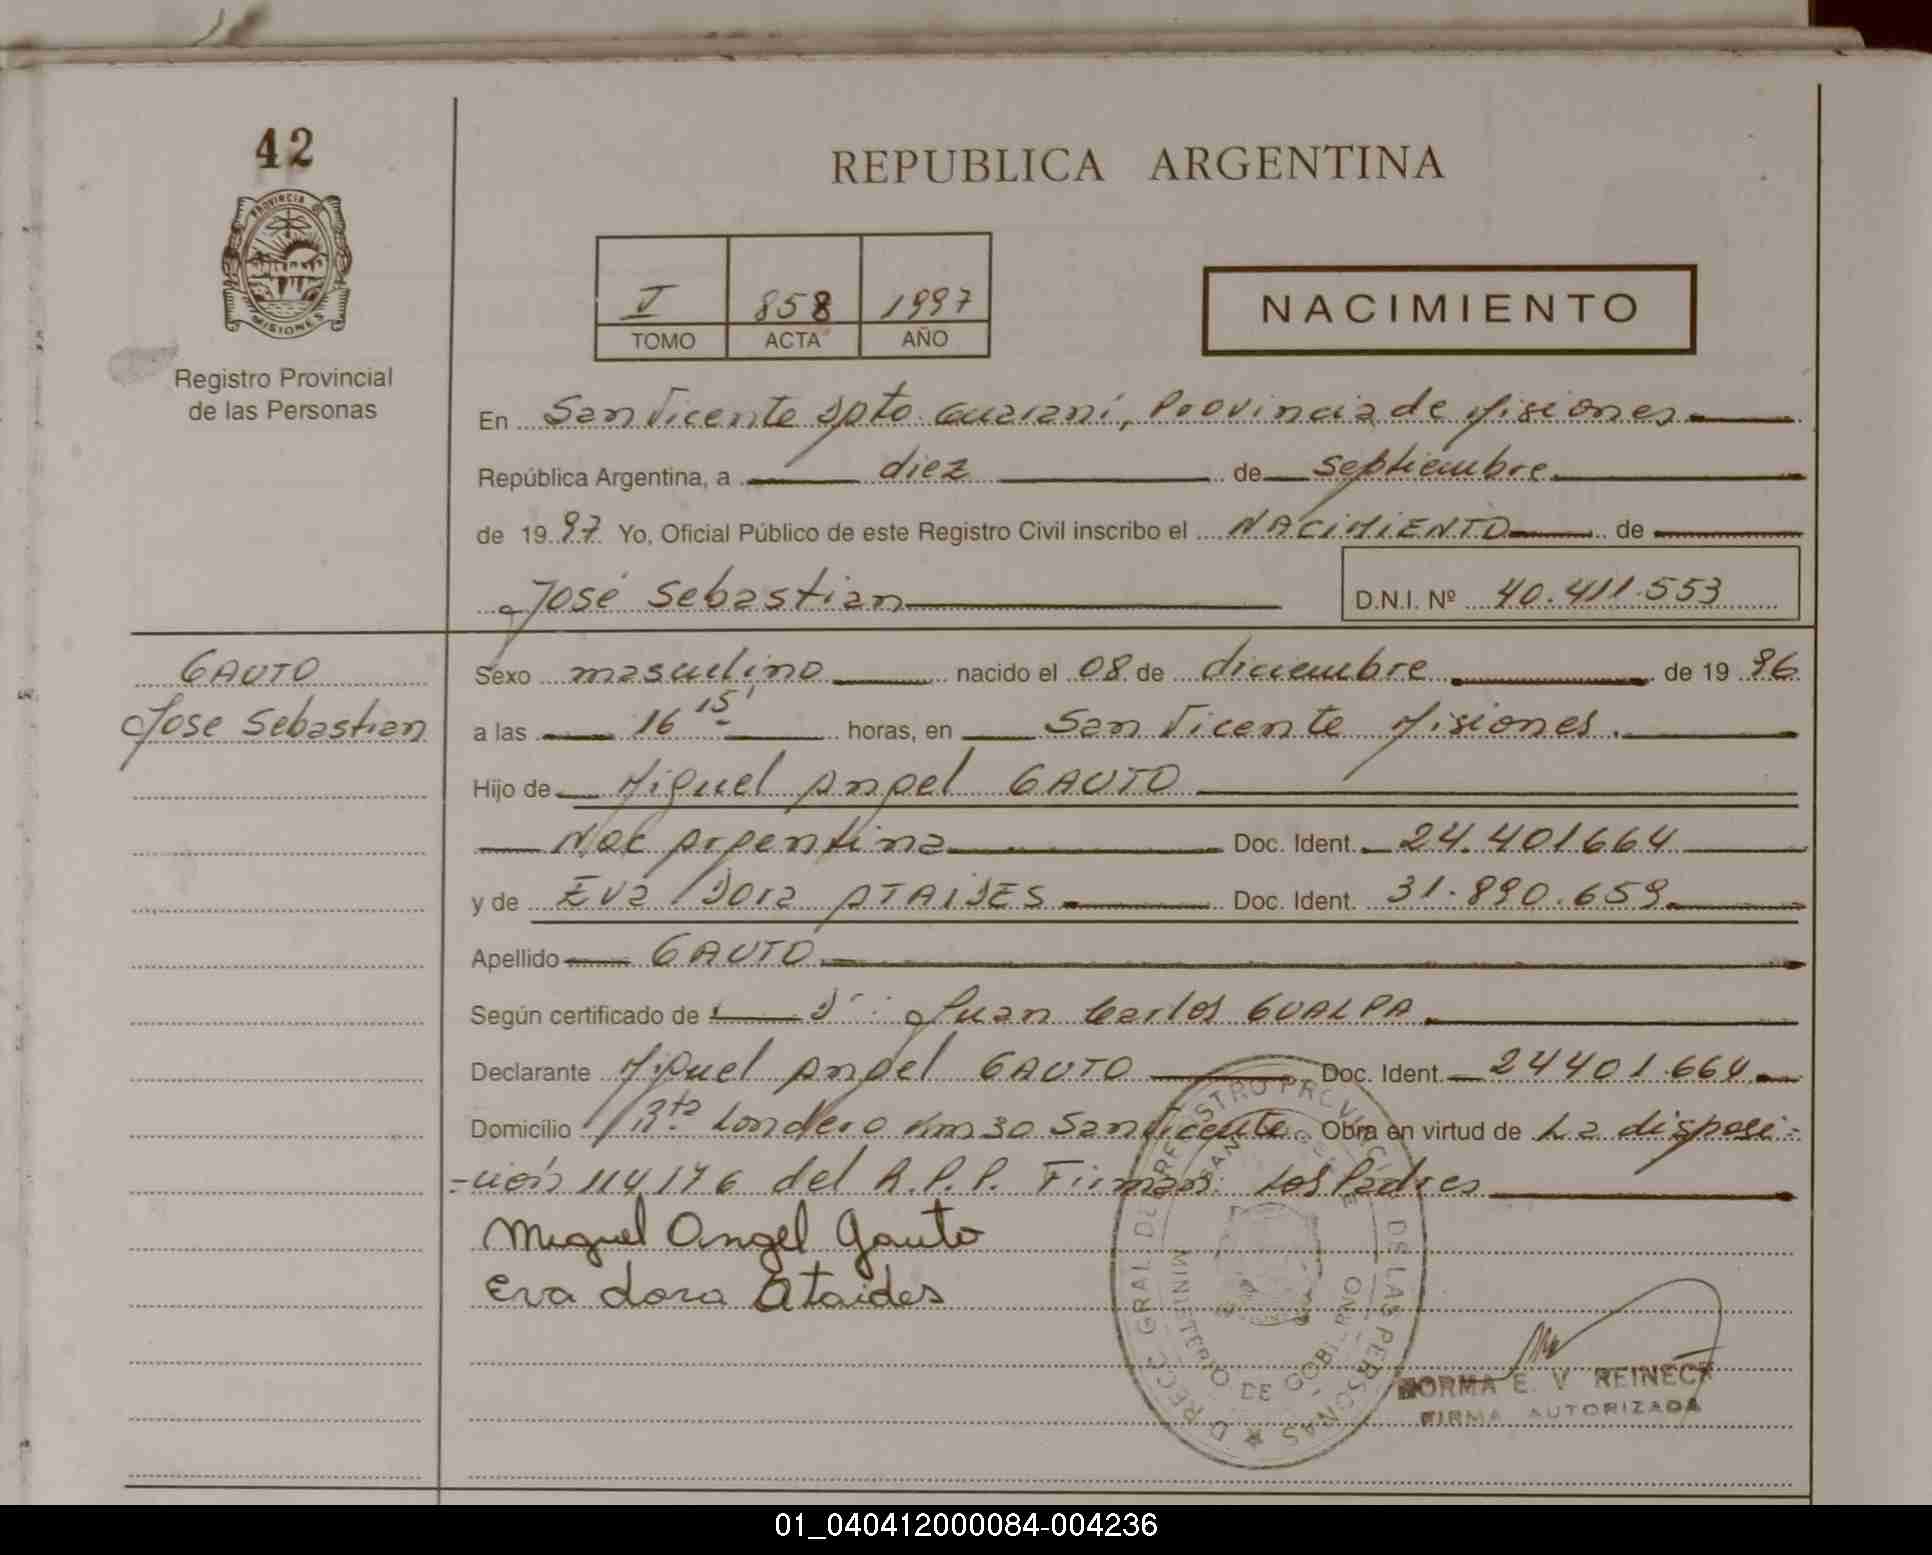 42
PROVINCIA
MISIONES
Registro Provincial
de las Personas
REPUBLICA ARGENTINA
V 858 1997
TOMO ACTA AÑO
NACIMIENTO
En San Vicente Dpto. Guaraní, Provincia de Misiones
República Argentina, a diez de septiembre
de 1997 Yo, Oficial Público de este Registro Civil inscribo el NACIMIENTO de
José Sebastian D.N.I. Nº 40.411.553
GAUTO
Jose Sebastian
Sexo masculino nacido el 08 de diciembre de 1996
a las 16 15' horas, en San Vicente Misiones.
Hijo de Miguel Angel GAUTO
Nac Argentina Doc. Ident. 24.401664
y de Eva Dora ATAIDES Doc. Ident. 31.890.659
Apellido GAUTO
Según certificado de Dr: Juan Carlos GUALPA
Declarante Miguel Angel GAUTO Doc. Ident. 24401.664
Domicilio Rta Londero Km 30 San Vicente. Obra en virtud de La disposi-
-ción 114/76 del R.P.P. Firman: Los Padres
Miguel Angel Gauto
Eva dora Ataides
DIRECC. GRAL DE REGISTRO PROVINCIAL DE LAS PERSONAS
SAN VICENTE
MINISTERIO DE GOBIERNO
NORMA E. V. REINECK
FIRMA AUTORIZADA
01_040412000084-004236